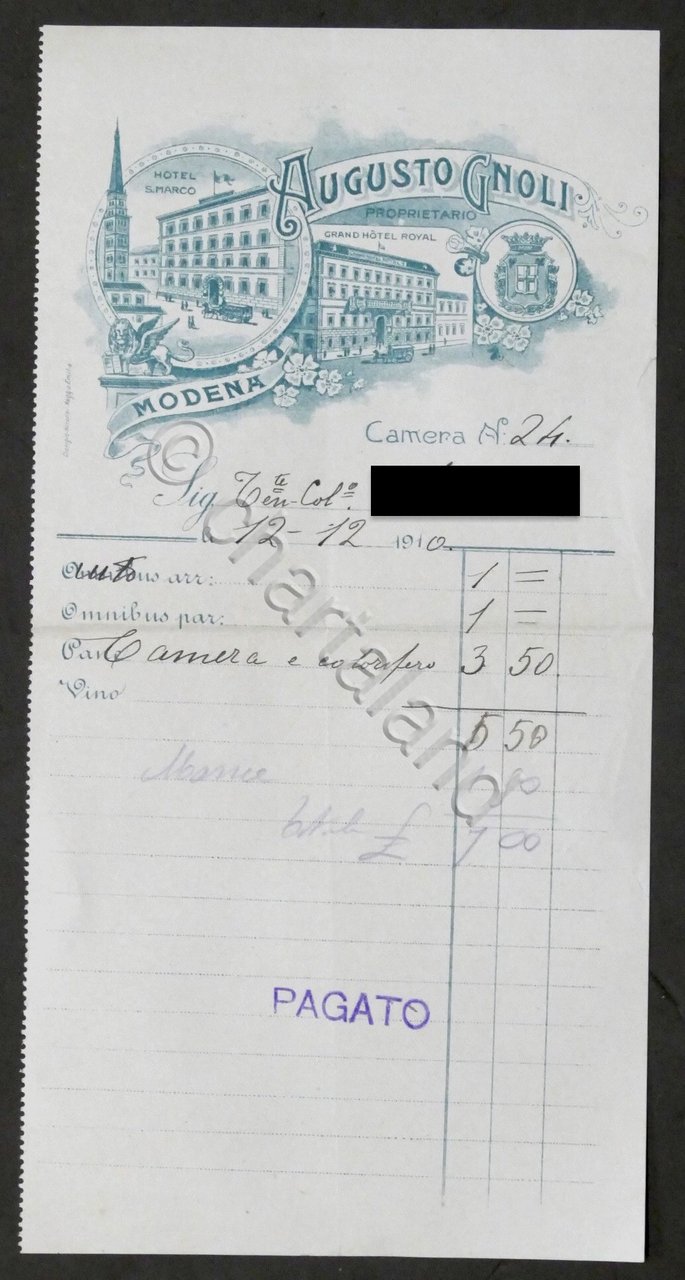 HOTEL
S. MARCO
AUGUSTO GNOLI
PROPRIETARIO
GRAND HÔTEL ROYAL
MODENA
Camera N: 24.
Sig. Ten.te Col.o
12 - 12 1910.
Omnibus arr: 1 =
Omnibus par: 1 =
Camera e calorifero 3 50
Vino
5 50
£ 7 00
PAGATO
© Chartaland